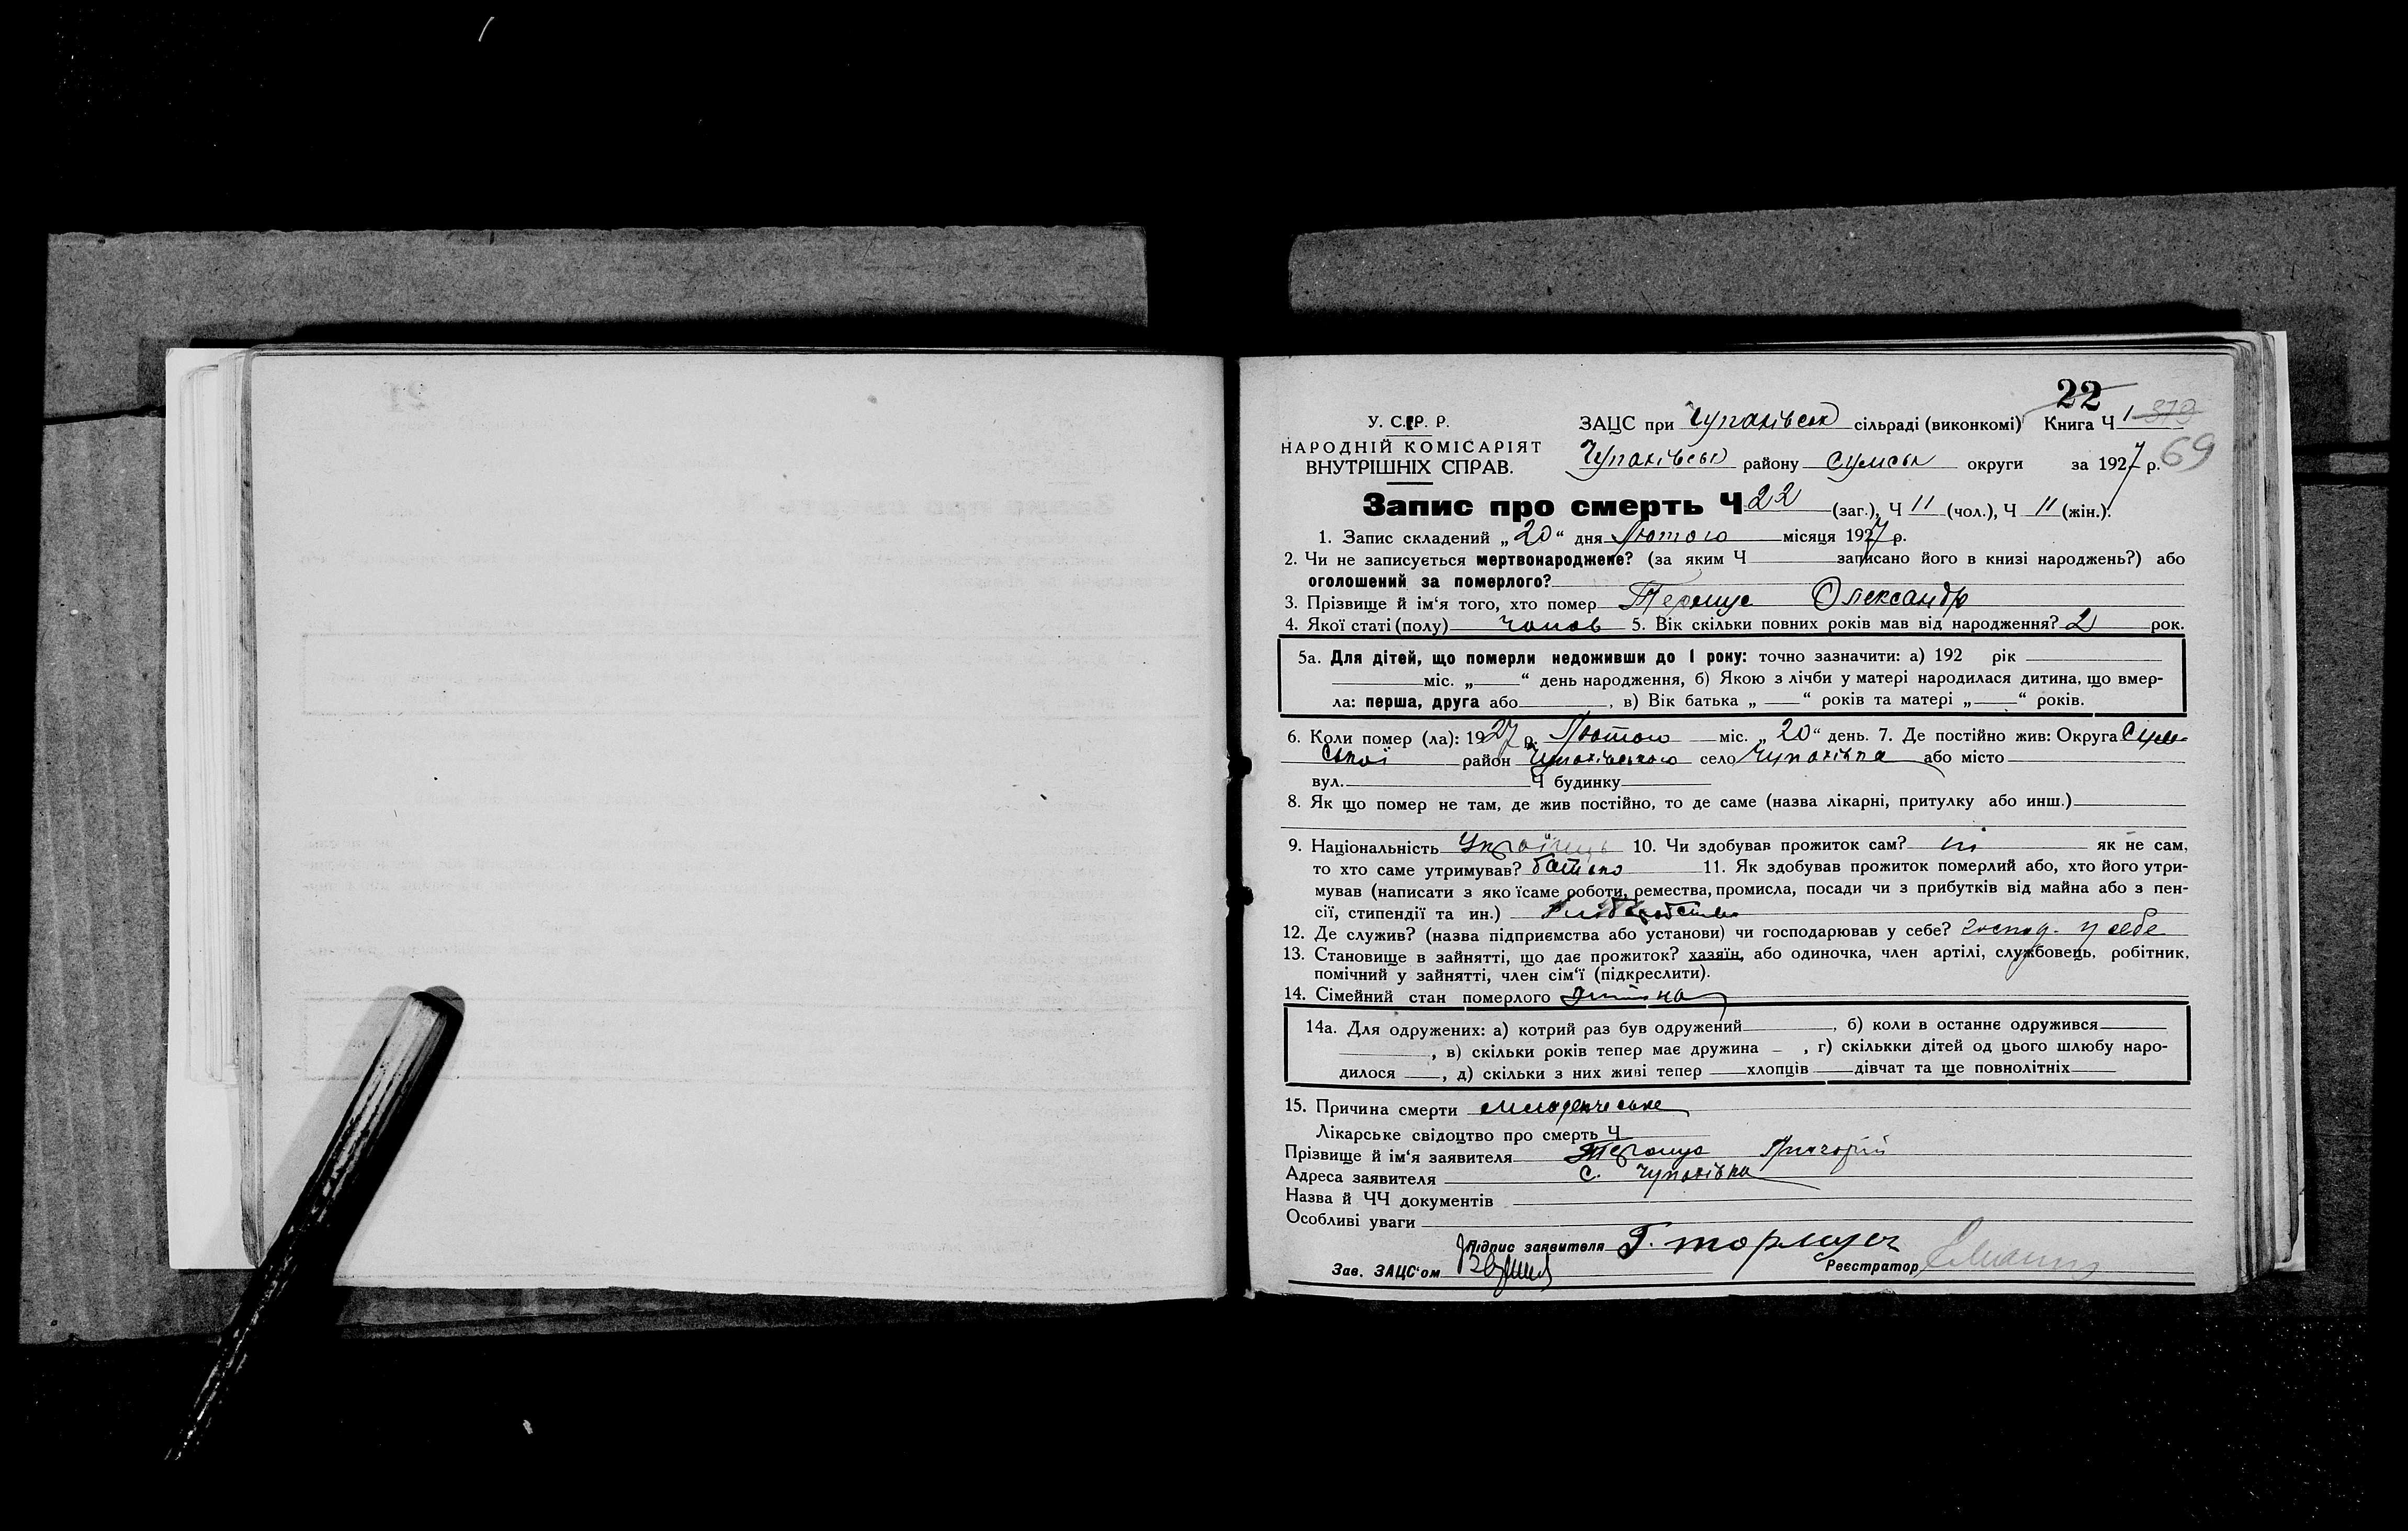 22
У. С. Р. Р.
НАРОДНІЙ КОМІСАРІЯТ
ВНУТРІШНІХ СПРАВ.
ЗАЦС при Чупахівськ сільраді (виконкомі) Книга Ч 1 379
Чупахівськ району Сумськ округи за 1927 р. 69
Запис про смерть Ч 22 (заг.), Ч 11 (чол.), Ч 11 (жін.).
1. Запис складений „20“ дня Лютого місяця 1927 р.
2. Чи не записується мертвонароджене? (за яким Ч записано його в книзі народжень?) або
оголошений за померлого?
3. Прізвище й ім‘я того, хто помер Олександр
4. Якої статі (полу) чолов 5. Вік скільки повних років мав від народження? 2 рок.
5а. Для дітей, що померли недоживши до 1 року: точно зазначити: а) 192 рік
міс. „ “ день народження, б) Якою з лічби у матері народилася дитина, що вмер-
ла: перша, друга або , в) Вік батька „ “ років та матері „ “ років.
6. Коли помер (ла): 1927 р. Лютого міс. „20“ день. 7. Де постійно жив: Округа Сум-
ської район Чупахівського село Чупахівка або місто
вул. Ч будинку
8. Як що помер не там, де жив постійно, то де саме (назва лікарні, притулку або инш.)
9. Національність Українець 10. Чи здобував прожиток сам? ні як не сам,
то хто саме утримував? батько 11. Як здобував прожиток померлий або, хто його утри-
мував (написати з яко їсаме роботи, ремества, промисла, посади чи з прибутків від майна або з пен-
сії, стипендії та ин.)
12. Де служив? (назва підприємства або установи) чи господарював у себе? господ. у себе
13. Становище в зайнятті, що дає прожиток? хазяїн, або одиночка, член артілі, службовець, робітник,
помічний у зайнятті, член сім‘ї (підкреслити).
14. Сімейний стан померлого дитина
14а. Для одружених: а) котрий раз був одружений , б) коли в останнє одружився
, в) скільки років тепер має дружина – , г) скількки дітей од цього шлюбу наро-
дилося , д) скільки з них живі тепер хлопців дівчат та ще повнолітніх
15. Причина смерти младенческе
Лікарське свідоцтво про смерть Ч
Прізвище й ім‘я заявителя Григорій
Адреса заявителя с. Чупахівка
Назва й ЧЧ документів
Особливі уваги
Підпис заявителя Г.
Зав. ЗАЦС‘ом Реєстратор